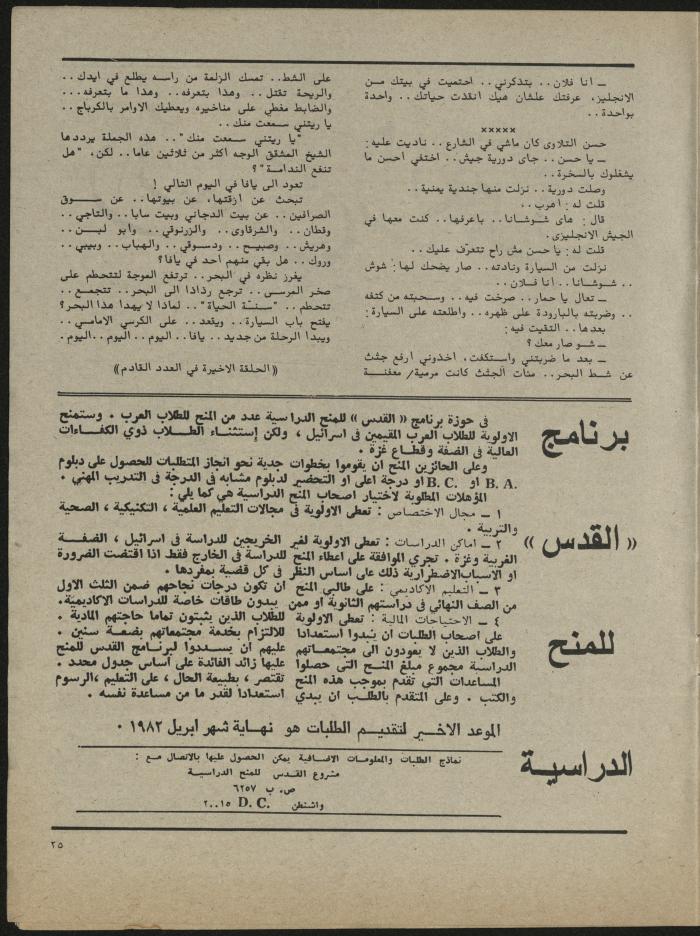 ـ أنا فلان.. بتذكرني.. احتميت في بيتك مـن
الانجليز، عرفتك علشان هيك انقذت حياتك.. واحدة
بواحدة..
×××××
حسن التلاوى كان ماشي في الشارع.. ناديت عليه:
ـ يا حسن.. جاى دورية جيش.. اختفي احسن ما
يشغلوك بالسخرة..
وصلت دورية.. نزلت منها جندية يمنية..
قلت له: اهرب..
قال: هاى شوشانا.. باعرفها.. كنت معها في
الجيش الانجليزى.
قلت له: يا حسن مش راح تتعرّف عليك..
نزلت من السيارة ونادته.. صار يضحك لها: شوش
.. شوشانا.. انا فلان..
ـ تعال يا حمار.. صرخت فيه.. وسحبته من كتفه
.. وضربته بالبارودة على ظهره.. واطلعته على السيارة:
بعدها.. التقيت فيه:
ـ شو صار معك؟
ـ بعد ما ضربتني واستكفت، اخذوني ارفع جثث
عن شط البحر.. مئات الجثث كانت مرمية/ معفنـة
على الشط.. تمسك الزلمة من راسه يطلع في ايدك..
والريحة تقتل.. وهذا بتعرفه.. وهذا ما بتعرفه...
والضابط مغطي على مناخيره ويعطيك الاوامر بالكرباج..
يا ريتني سمعت منك..
"يا ريتني سـمعت منك".. هذه الجملة يرددها
الشيخ المشقق الوجه اكثر من ثلاثين عاما.. لكن، "هل
تنفع الندامة"؟
تعود الى يافا في اليوم التالي!
تبحث عن ازقتها، عن بيوتها.. عن ســـوق
الصرافين.. عن بيت الدجاني وبيت سابا.. والتاجي..
وقطان.. والشرقاوى.. والزرنوقي.. وابو لبـــن..
وهريش.. وصبيـح.. ودسـوقي.. والهباب.. وبيبي..
وروك.. هل بقي منهم أحد في يافا؟
يغرز نظره في البحر.. ترتفع الموجة لتتحطم على
صخر المرسـى.. ترجع رذاذا الى البحر.. تتجمع..
تتحطم.. "سنـة الحياة".. لماذا لا يهدا هذا البحر؟
يفتح باب السيارة.. ويقعد.. على الكرسي الامامي..
ويبدا الرحلة من جديد.. يافا.. اليوم.. اليوم..اليوم.
((الحلقة الاخيرة في العدد القادم))
برنامج
« القدس »
للمنح
الدراسية
في حوزة برنامج « القدس » للمنح الدراسية عدد من المنح للطلاب العرب . وستمنح
الاولوية للطلاب العرب المقيمين في اسرائيل ، ولكن إستثناء الطـلاب ذوي الكفـاءات
العالية في الضفة وقطـاع غزة .
وعلى الحائزين المنح ان يقوموا بخطوات جدية نحو انجاز المتطلبات للحصول على دبلوم
B. A. او B. C. او درجة اعلى او التحضير لدبلوم مشابه في الدرجة في التدريب المهني .
المؤهلات المطلوبة لاختيار اصحاب المنح الدراسية هي كما يلي :
١ ـ مجال الاختصاص : تعطى الاولوية في مجالات التعليم العلمية ، التكنيكية ، الصحية
والتربية .
٢ ـ اماكن الدراسات : تعطى الاولوية لغير الخريجين للدراسة في اسرائيل ، الضفـــة
الغربية وغزة . تجري الموافقة على اعطاء المنح للدراسة في الخارج فقط اذا اقتضت الضرورة
او الاسباب الاضطرارية ذلك على اساس النظر في كل قضية بمفردها .
٣ ـ التعليم الاكاديمي : على طالبي المنح ان تكون درجات نجاحهم ضمن الثلث الاول
من الصف النهائي في دراستهم الثانوية او ممن يبدون طاقات خاصة للدراسات الاكاديمية .
٤ ـ الاحتياجات المالية : تعطى الاولوية للطلاب الذين يثبتون تماما حاجتهم المادية .
على اصحاب الطلبات ان يبدوا استعدادا للالتزام بخدمة مجتمعاتهم بضعـة سنين .
والطلاب الذين لا يعودون الى مجتمعـاتهم عليهم ان يسـددوا لبرنـامج القدس للمنح
الدراسية مجموع مبلغ المنـح التي حصلوا عليها زائد الفائدة على أساس جدول محدد .
المساعدات التي تقدم بموجب هذه المنح تقتصر ، بطبيعة الحال ، على التعليم ، الرسوم
والكتب . وعلى المتقدم بالطلـب ان يبدي استعدادا لقدر ما من مساعدة نفسه .
الموعد الاخيـر لتقديـم الطلبات هو نهـاية شهر ابريل ١٩٨٢ .
نماذج الطلبات والمعلومـات الاضـافية يمكن الحصول عليها بالاتصال مـع :
مشروع القـدس للمنح الدراسيـة
ص. ب ٦٢٥٧
واشنطن D. C. ٢٠٠١٥
٢٥